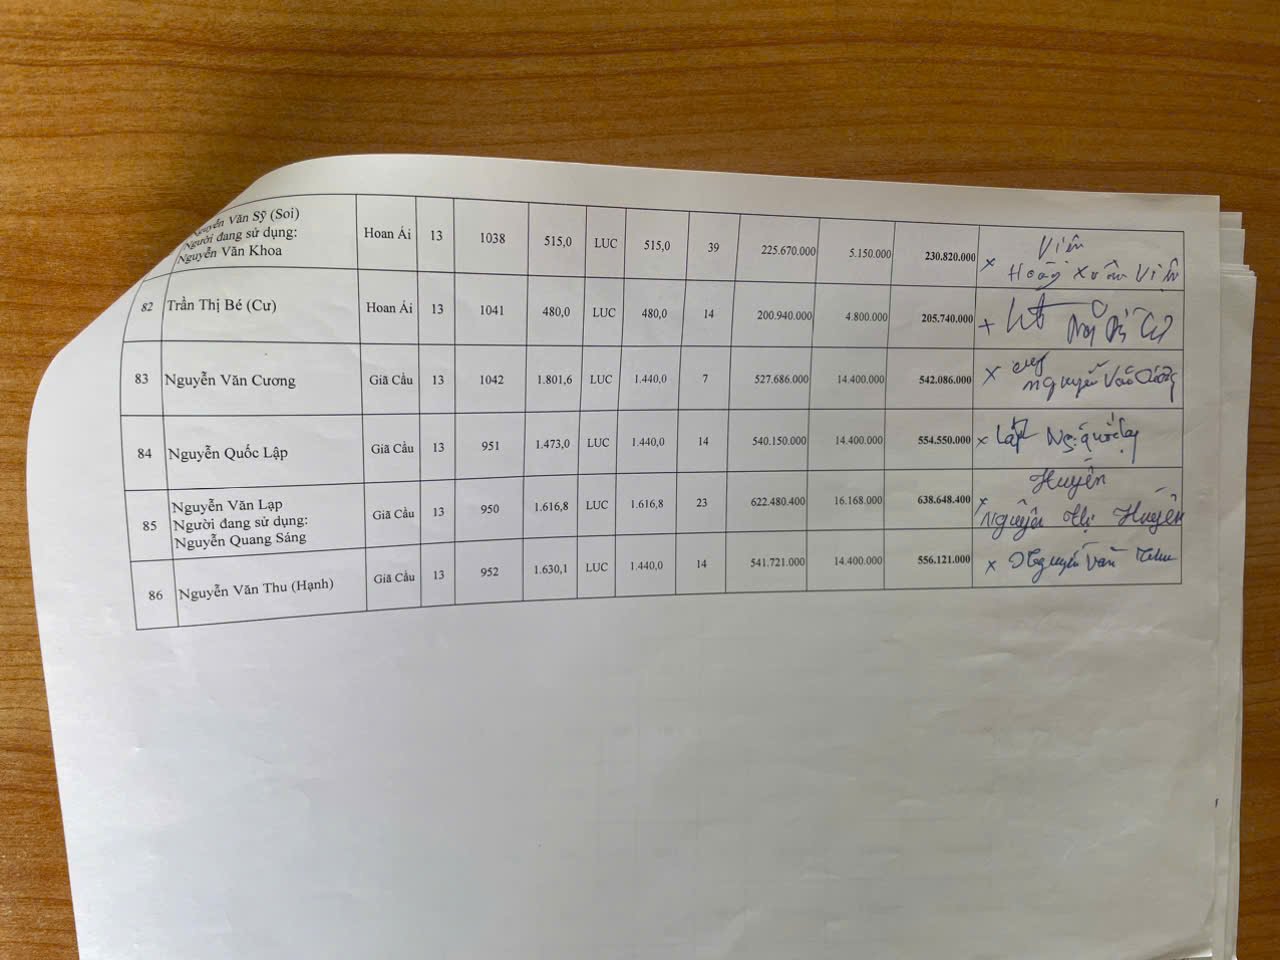 Nguyễn Văn Sỹ (Soi)
Người đang sử dụng:
Nguyễn Văn Khoa
Hoan Ái 13 1038 515,0 LUC 515,0 39 225.670.000 5.150.000 230.820.000 x Viên
Hoàng Xuân Viên
82 Trần Thị Bé (Cư) Hoan Ái 13 1041 480,0 LUC 480,0 14 200.940.000 4.800.000 205.740.000 +
83 Nguyễn Văn Cương Giã Cầu 13 1042 1.801,6 LUC 1.440,0 7 527.686.000 14.400.000 542.086.000 x
Nguyễn Văn Cương
84 Nguyễn Quốc Lập Giã Cầu 13 951 1.473,0 LUC 1.440,0 14 540.150.000 14.400.000 554.550.000 x Lập
85 Nguyễn Văn Lạp
Người đang sử dụng:
Nguyễn Quang Sáng
Giã Cầu 13 950 1.616,8 LUC 1.616,8 23 622.480.400 16.168.000 638.648.400 x Huyền
Nguyễn Thị Huyền
86 Nguyễn Văn Thu (Hạnh) Giã Cầu 13 952 1.630,1 LUC 1.440,0 14 541.721.000 14.400.000 556.121.000 x Nguyễn Văn Thu